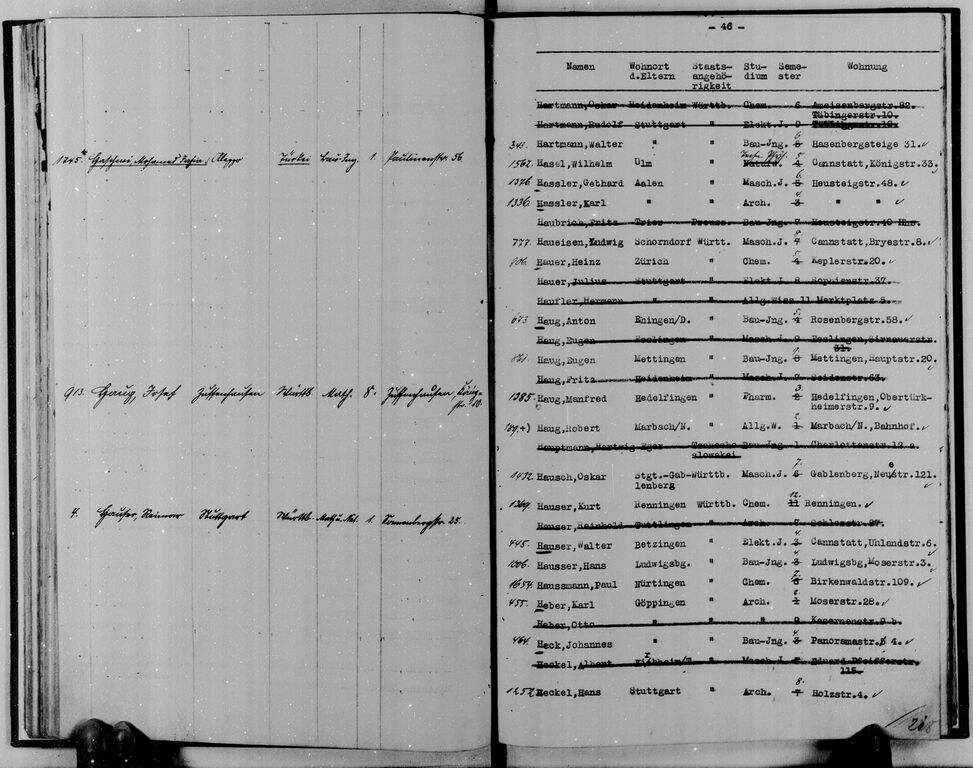 1245* Haschmi Mohamed Tahir, Aleppo Türkei Bau-Ing. 1. Paulinenstr. 56
913. Haug, Josef Zuffenhausen Württb. Math. 8. Zuffenhausen, König-
str. 10.
4. Hauser, Reimar Stuttgart Württb. Math u. Nat. 1. Sonnenbergstr. 25.
- 46 -
Namen Wohnort Staats- Stu- Seme- Wohnung
d.Eltern angehö- dium ster
rigkeit
Hartmann,Oskar Heidenheim Württb. Chem. 6 Ameisenbergstr.82.
Tübingerstr.10.
Hartmann,Rudolf Stuttgart " Elekt.J. 9
343. Hartmann,Walter " " Bau-Jng. 6 Hasenbergsteige 31.
1562. Hasel,Wilhelm Ulm " Naturw. 5. 4 Cannstatt,Königstr.33.
1376 Hassler,Gebhard Aalen " Masch.J. 6. 5 Heusteigstr.48.
1336 Hassler,Karl " " Arch. 4. 3 " "
Haubrich,Fritz Trier Preuss. Bau-Jng. 7 Heusteigstr.49 Hhs.
777. Haueisen,Ludwig Schorndorf Württ. Masch.J. 8. 7 Cannstatt,Bryestr.8.
906. Hauer,Heinz Zürich " Chem. 5. 4 Keplerstr.20.
Hauer,Julius Stuttgart " Elekt.J. 8 Sophienstr.37.
Haufler,Hermann " " Allg.Wiss.11 Marktplatz 5.
673 Haug,Anton Ehingen/D. " Bau-Jng. 5. 4 Rosenbergstr.58.
Haug,Eugen Esslingen " Masch.J. 9 Esslingen,Sirnauerstr.
31.
861. Haug,Eugen Mettingen " Bau-Jng. 9. 8 Mettingen,Hauptstr.20.
Haug,Fritz Heidenheim " Masch.J. 7. Seidenstr.63.
1385. Haug,Manfred Hedelfingen " Pharm. 3. 2 Hedelfingen,Obertürk-
heimerstr.9.
189+) Haug,Robert Marbach/N. " Allg.W. 2. 1 Marbach/N.,Bahnhof.
Hauptmann,Hartwig Eger Tschecho Bau-Jng. 1 Charlottenstr.12 a.
slowakei
1432. Hausch,Oskar Stgt.-Gab-Württb. Masch.J. 7. 6 Gablenberg,Neuestr.121.
lenberg
1369. Hauser,Kurt Renningen Württb. Chem. 12. 11 Renningen.
Hauser,Reinhold Tuttlingen " Arch. 7 Schloss­tr.87
445. Hauser,Walter Betzingen " Elekt.J. 4 3 Cannstatt,Uhlandstr.6.
1006. Hausser,Hans Ludwigsbg. " Bau-Jng. 4 3 Ludwigsbg,Moserstr.3.
1654. Haussmann,Paul Nürtingen " Chem. 7. 6 Birkenwaldstr.109.
455. Heber,Karl Göppingen " Arch. 2. 1 Moserstr.28.
Heber,Otto " " " 9 Kasernenstr.9 b.
464. Heck,Johannes " " Bau-Jng. 4. 3 Panoramastr. 4.
Heckel,Albert Kirchheim/T. " Masch.J. Eduard Pfeifferstr.
115.
1252. Heckel,Hans Stuttgart " Arch. 8. 7 Holzstr.4.